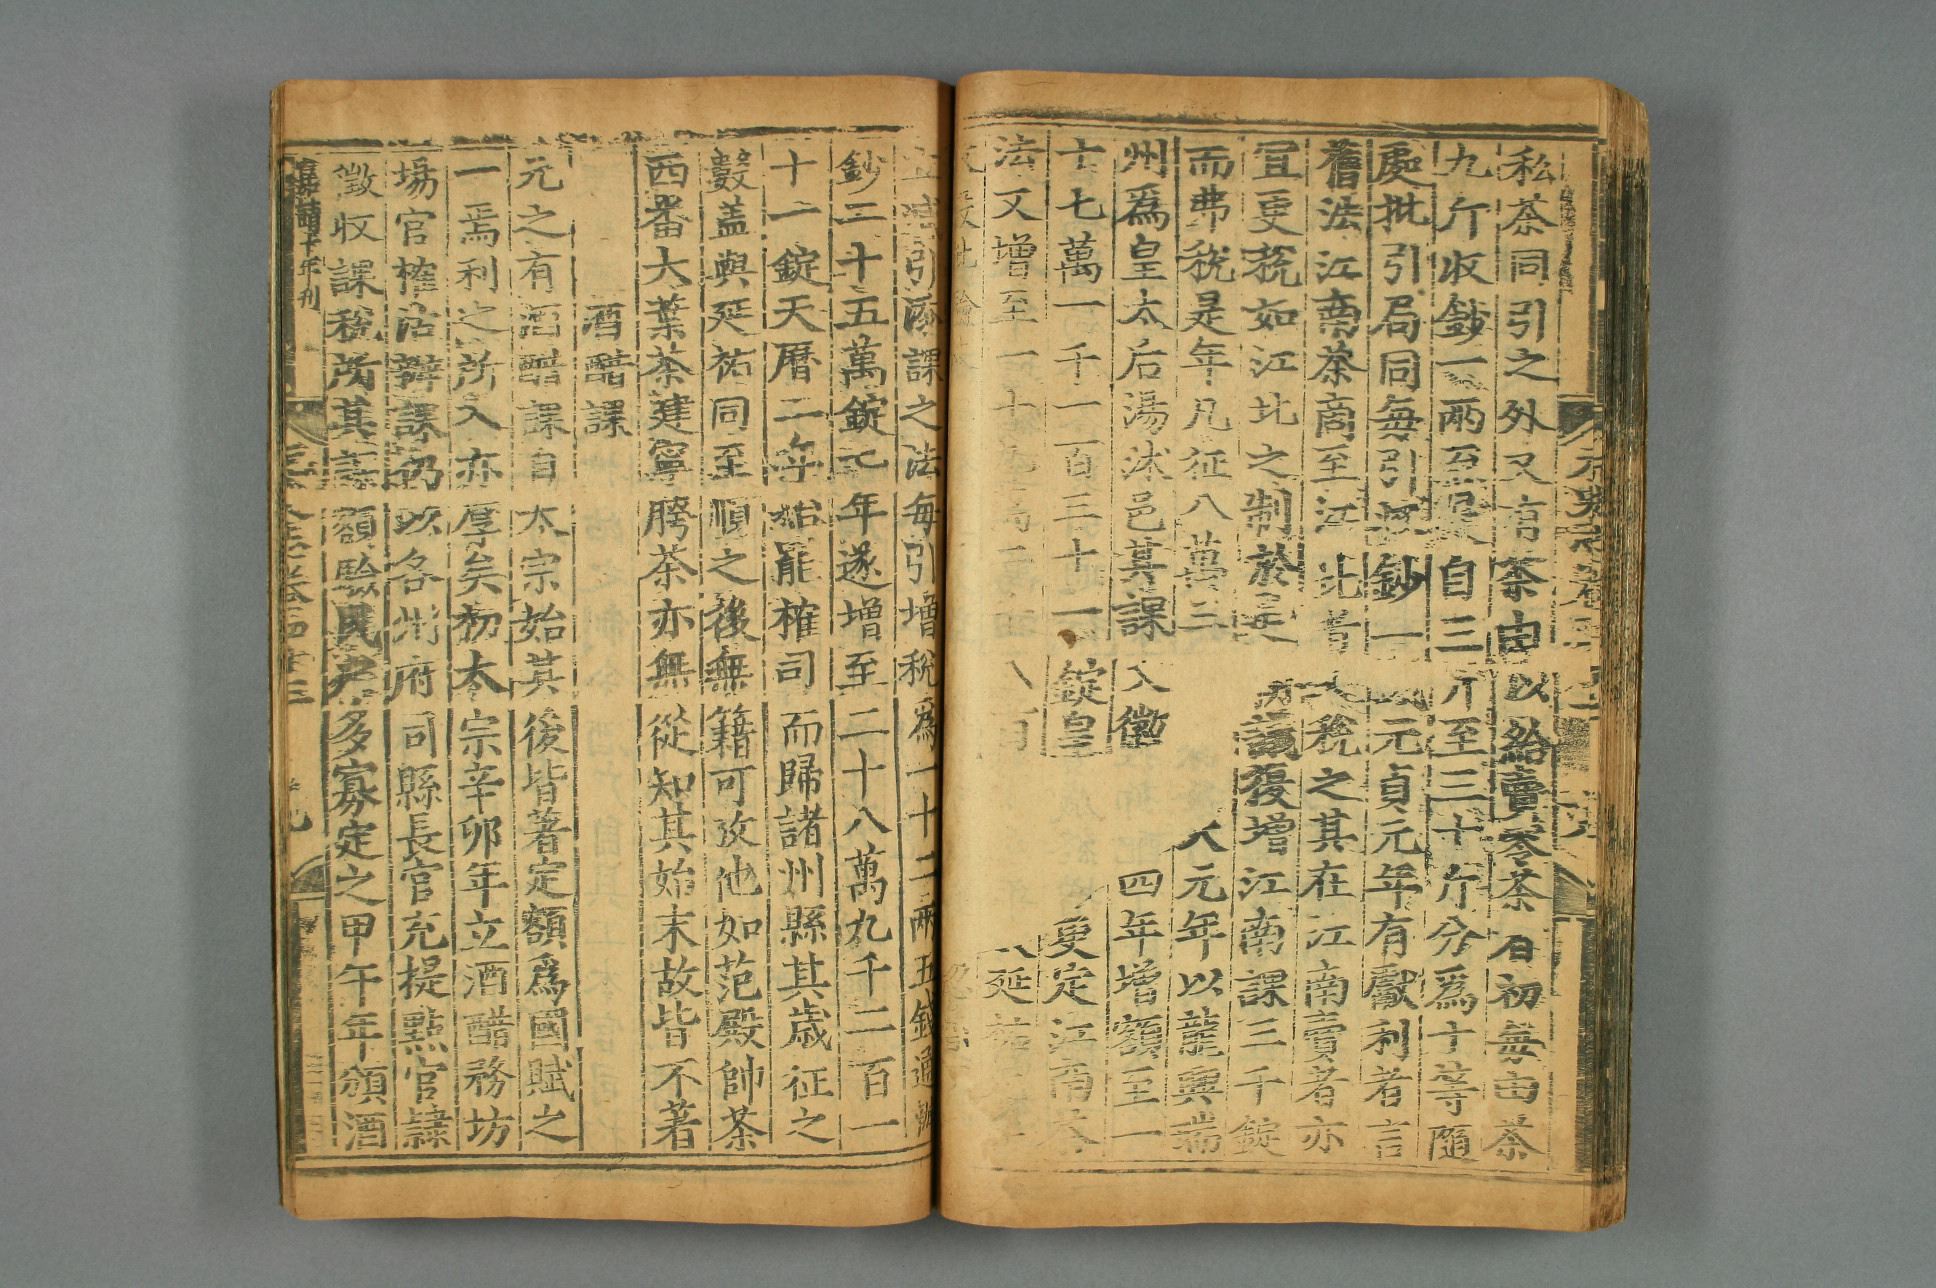 私茶同引之外又有茶由以給賣零茶者初每由茶
九斤收鈔一兩至是自三斤至三十斤分爲十等隨
處批引局同每引收鈔一 元貞元年有獻利者言
舊法江南茶商至江北者 稅之其在江南賣者亦
宜更稅如江北之制於是 議復增江南課三千錠
而弗稅是年凡征八萬三 大元年以龍興瑞
州爲皇太后湯沐邑其課入徽 四年增額至一
十七萬一千一百三十一錠皇 更定江南茶
法又增至 八延祐
引添課之法每引增稅爲一十二兩五錢通
鈔二十五萬錠 年遂增至二十八萬九千二百一
十一錠天曆二年始罷榷司而歸諸州縣其歲征之
數蓋與延祐同至順之後無籍可攷他如范殿帥茶
西番大葉茶建寧胯茶亦無從知其始末故皆不著
酒醋課
元之有酒醋課自太宗始其後皆著定額爲國賦之
一焉利之所入亦厚矣初太宗辛卯年立酒醋務坊
場官榷沽辦課仍以各州府司縣長官充提點官隸
徵收課稅所其課額驗民戶多寡定之甲午年頒酒
嘉靖十年刊